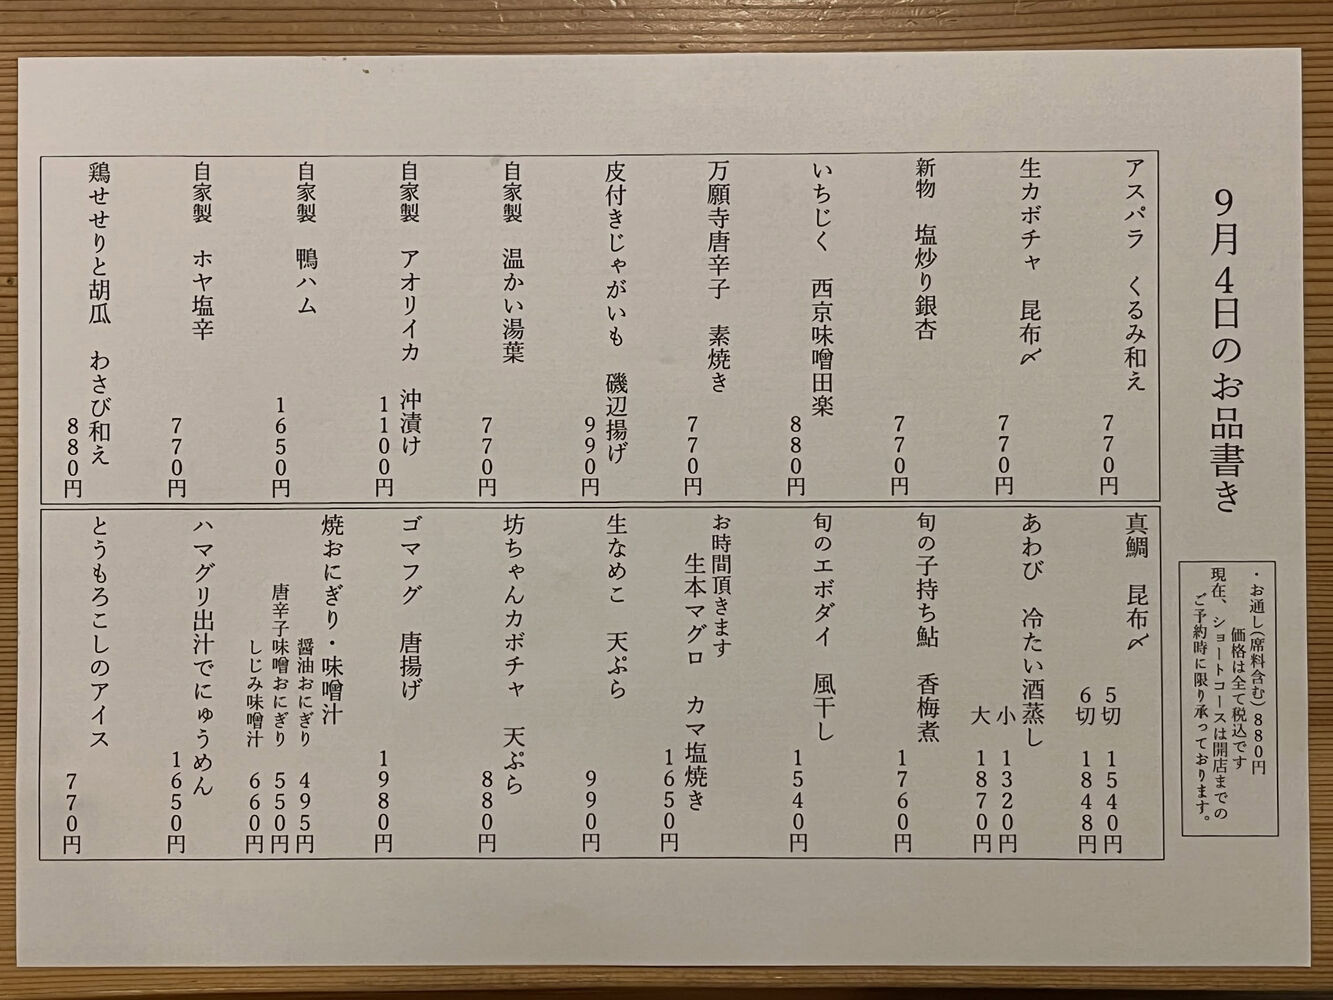 9月4日のお品書き
・お通し(席料含む)880円
価格は全て税込です
現在、ショートコースは開店までの
ご予約時に限り承っております。
アスパラ　くるみ和え
770円
生カボチャ　昆布〆
770円
新物　塩炒り銀杏
770円
いちじく　西京味噌田楽
880円
万願寺唐辛子　素焼き
770円
皮付きじゃがいも　磯辺揚げ
990円
自家製　温かい湯葉
770円
自家製　アオリイカ　沖漬け
1100円
自家製　鴨ハム
1650円
自家製　ホヤ塩辛
770円
鶏せせりと胡瓜　わさび和え
880円
真鯛　昆布〆
5切　1540円
6切　1848円
あわび　冷たい酒蒸し
小　1320円
大　1870円
旬の子持ち鮎　香梅煮
1760円
旬のエボダイ　風干し
1540円
お時間頂きます
生本マグロ　カマ塩焼き
1650円
生なめこ　天ぷら
990円
坊ちゃんカボチャ　天ぷら
880円
ゴマフグ　唐揚げ
1980円
焼おにぎり・味噌汁
醤油おにぎり　495円
唐辛子味噌おにぎり　550円
しじみ味噌汁　660円
ハマグリ出汁でにゅうめん
1650円
とうもろこしのアイス
770円